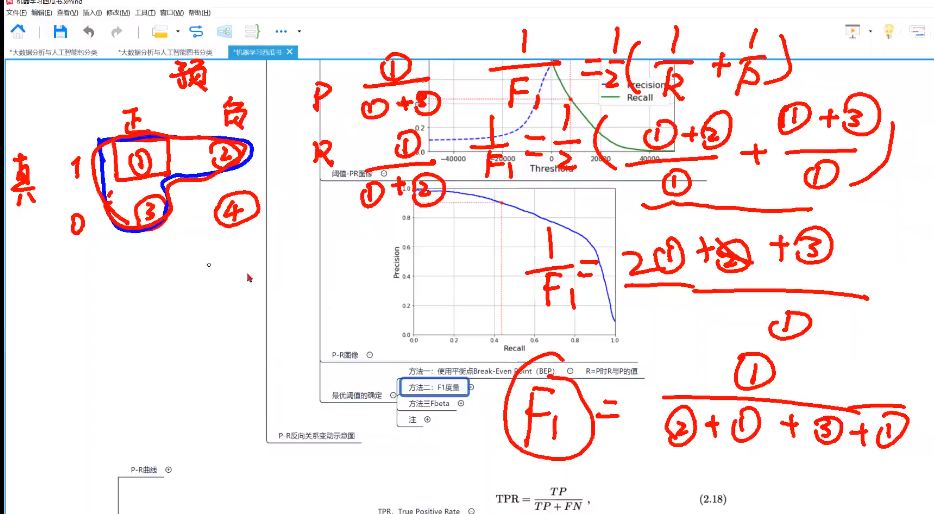 机器学习西瓜书.xmind
文件(F) 编辑(E) 查看(V) 插入(I) 修改(M) 工具(T) 窗口(W) 帮助(H)
*大数据分析与人工智能的分类
*大数据分析与人工智能图书分类
*机器学习西瓜书
预
正 负
真
1 ① ②
0 ③ ④
P ①/(①+③)
R ①/(①+②)
1/F₁ = 1/2(1/R + 1/P)
1/F₁ = 1/2((①+②)/① + (①+③)/①)
1/F₁ = (2①+②+③)/①
F₁ = ①/(②+①+③+①)
Precision
Recall
0.2
0.0
-40000 -20000 0 20000 40000
Threshold
阈值-PR图像
1.0
0.8
0.6
0.4
0.2
0.0
Precision
0.0 0.2 0.4 0.6 0.8 1.0
Recall
P-R图像
最优阈值的确定
方法一：使用平衡点Break-Even Point（BEP）
R=P时R与P的值
方法二：F1度量
方法三Fbeta
注
P-R反向关系变动示意图
P-R曲线
TPR = TP/(TP + FN) , (2.18)
TPR，True Positive Rate